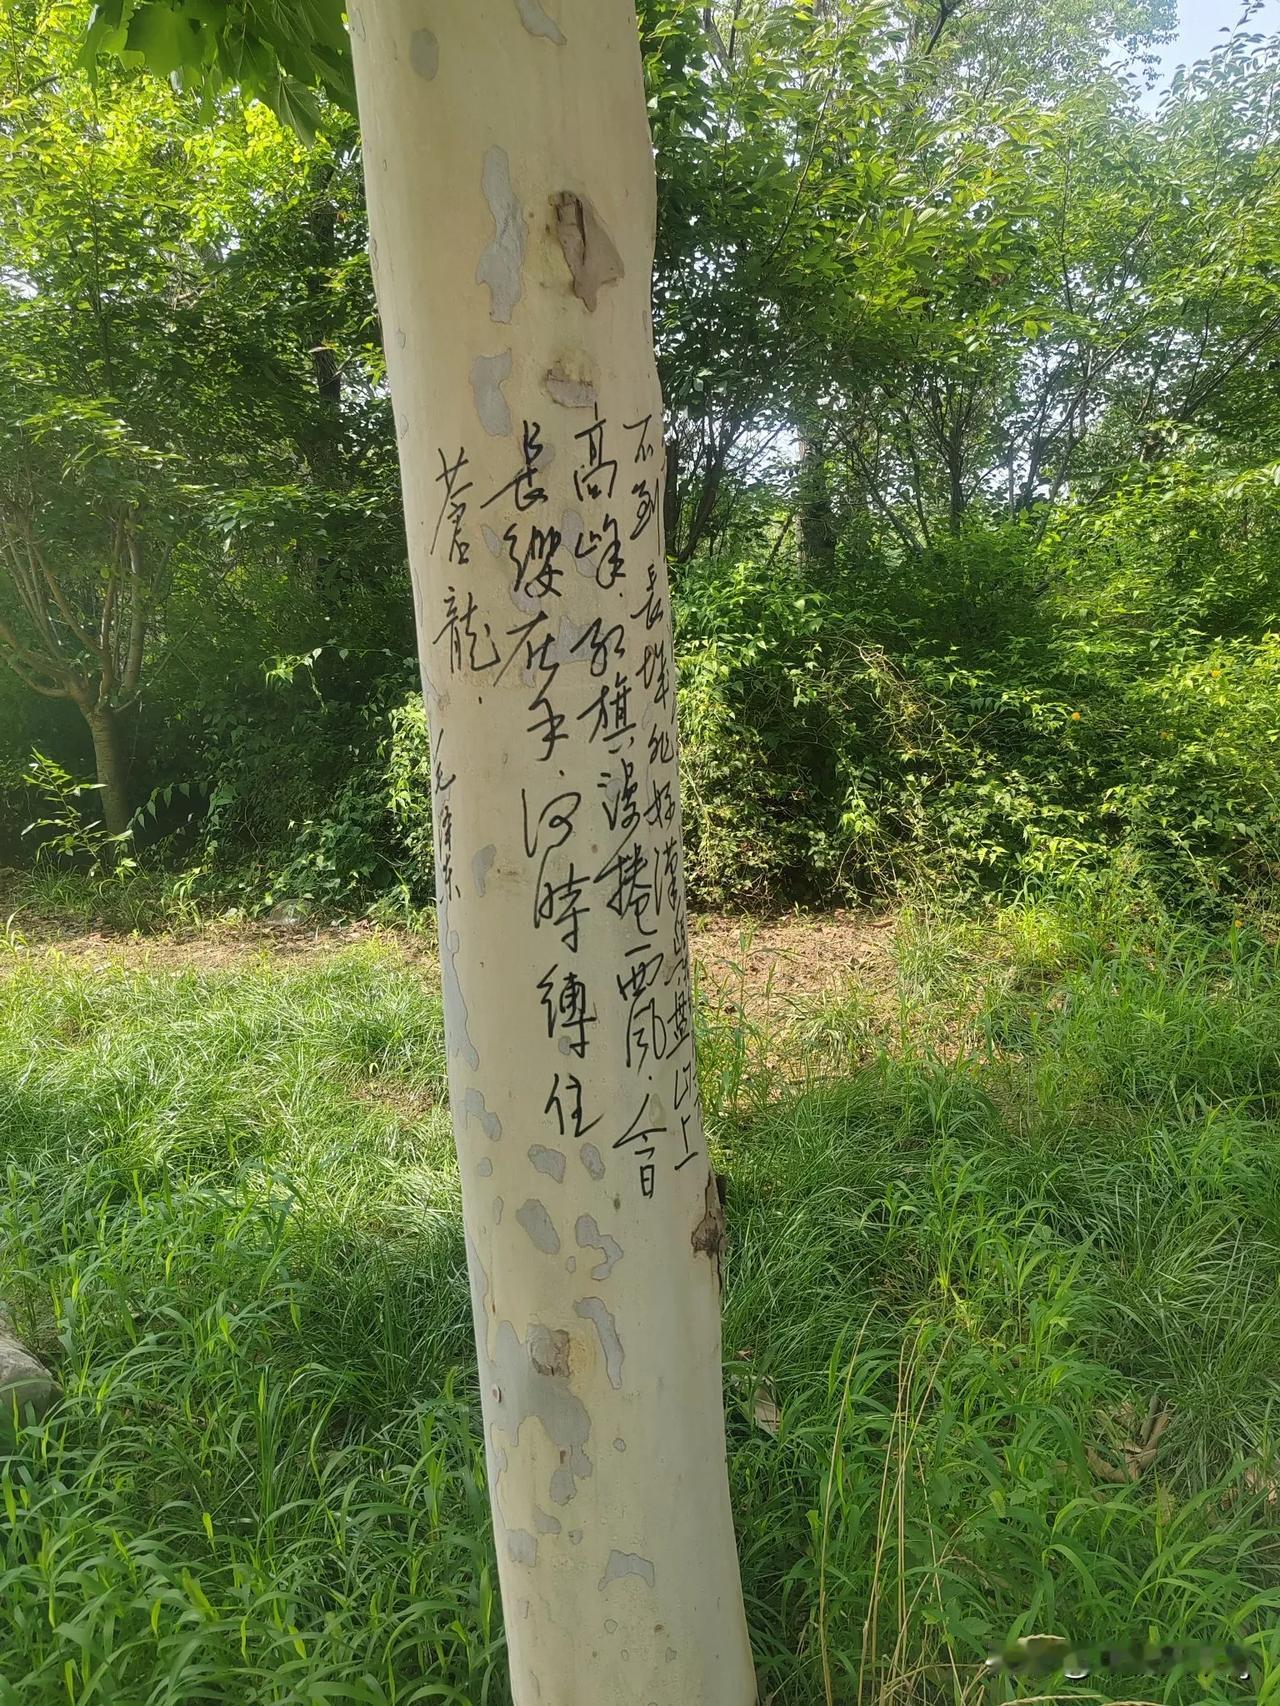 不到長城非好漢盤山上
高峰.红旗漫捲西風.今日
長纓在手.何時縛住
蒼龍.
毛泽东